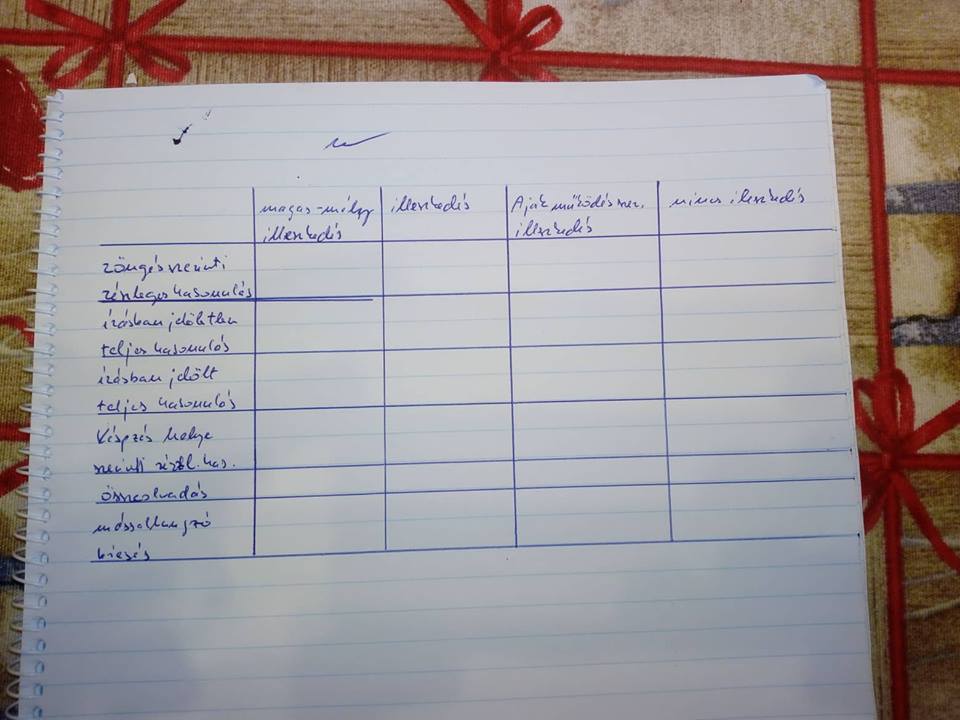 magas-mély illeszkedés Ajakműködés szer. nincs illeszkedés
illeszkedés illeszkedés
zöngés szerinti
részleges hasonulás
írásban jelöletlen
teljes hasonulás
írásban jelölt
teljes hasonulás
Képzés helye
szerinti részl. has.
összeolvadás
mássalhangzó
kiesés